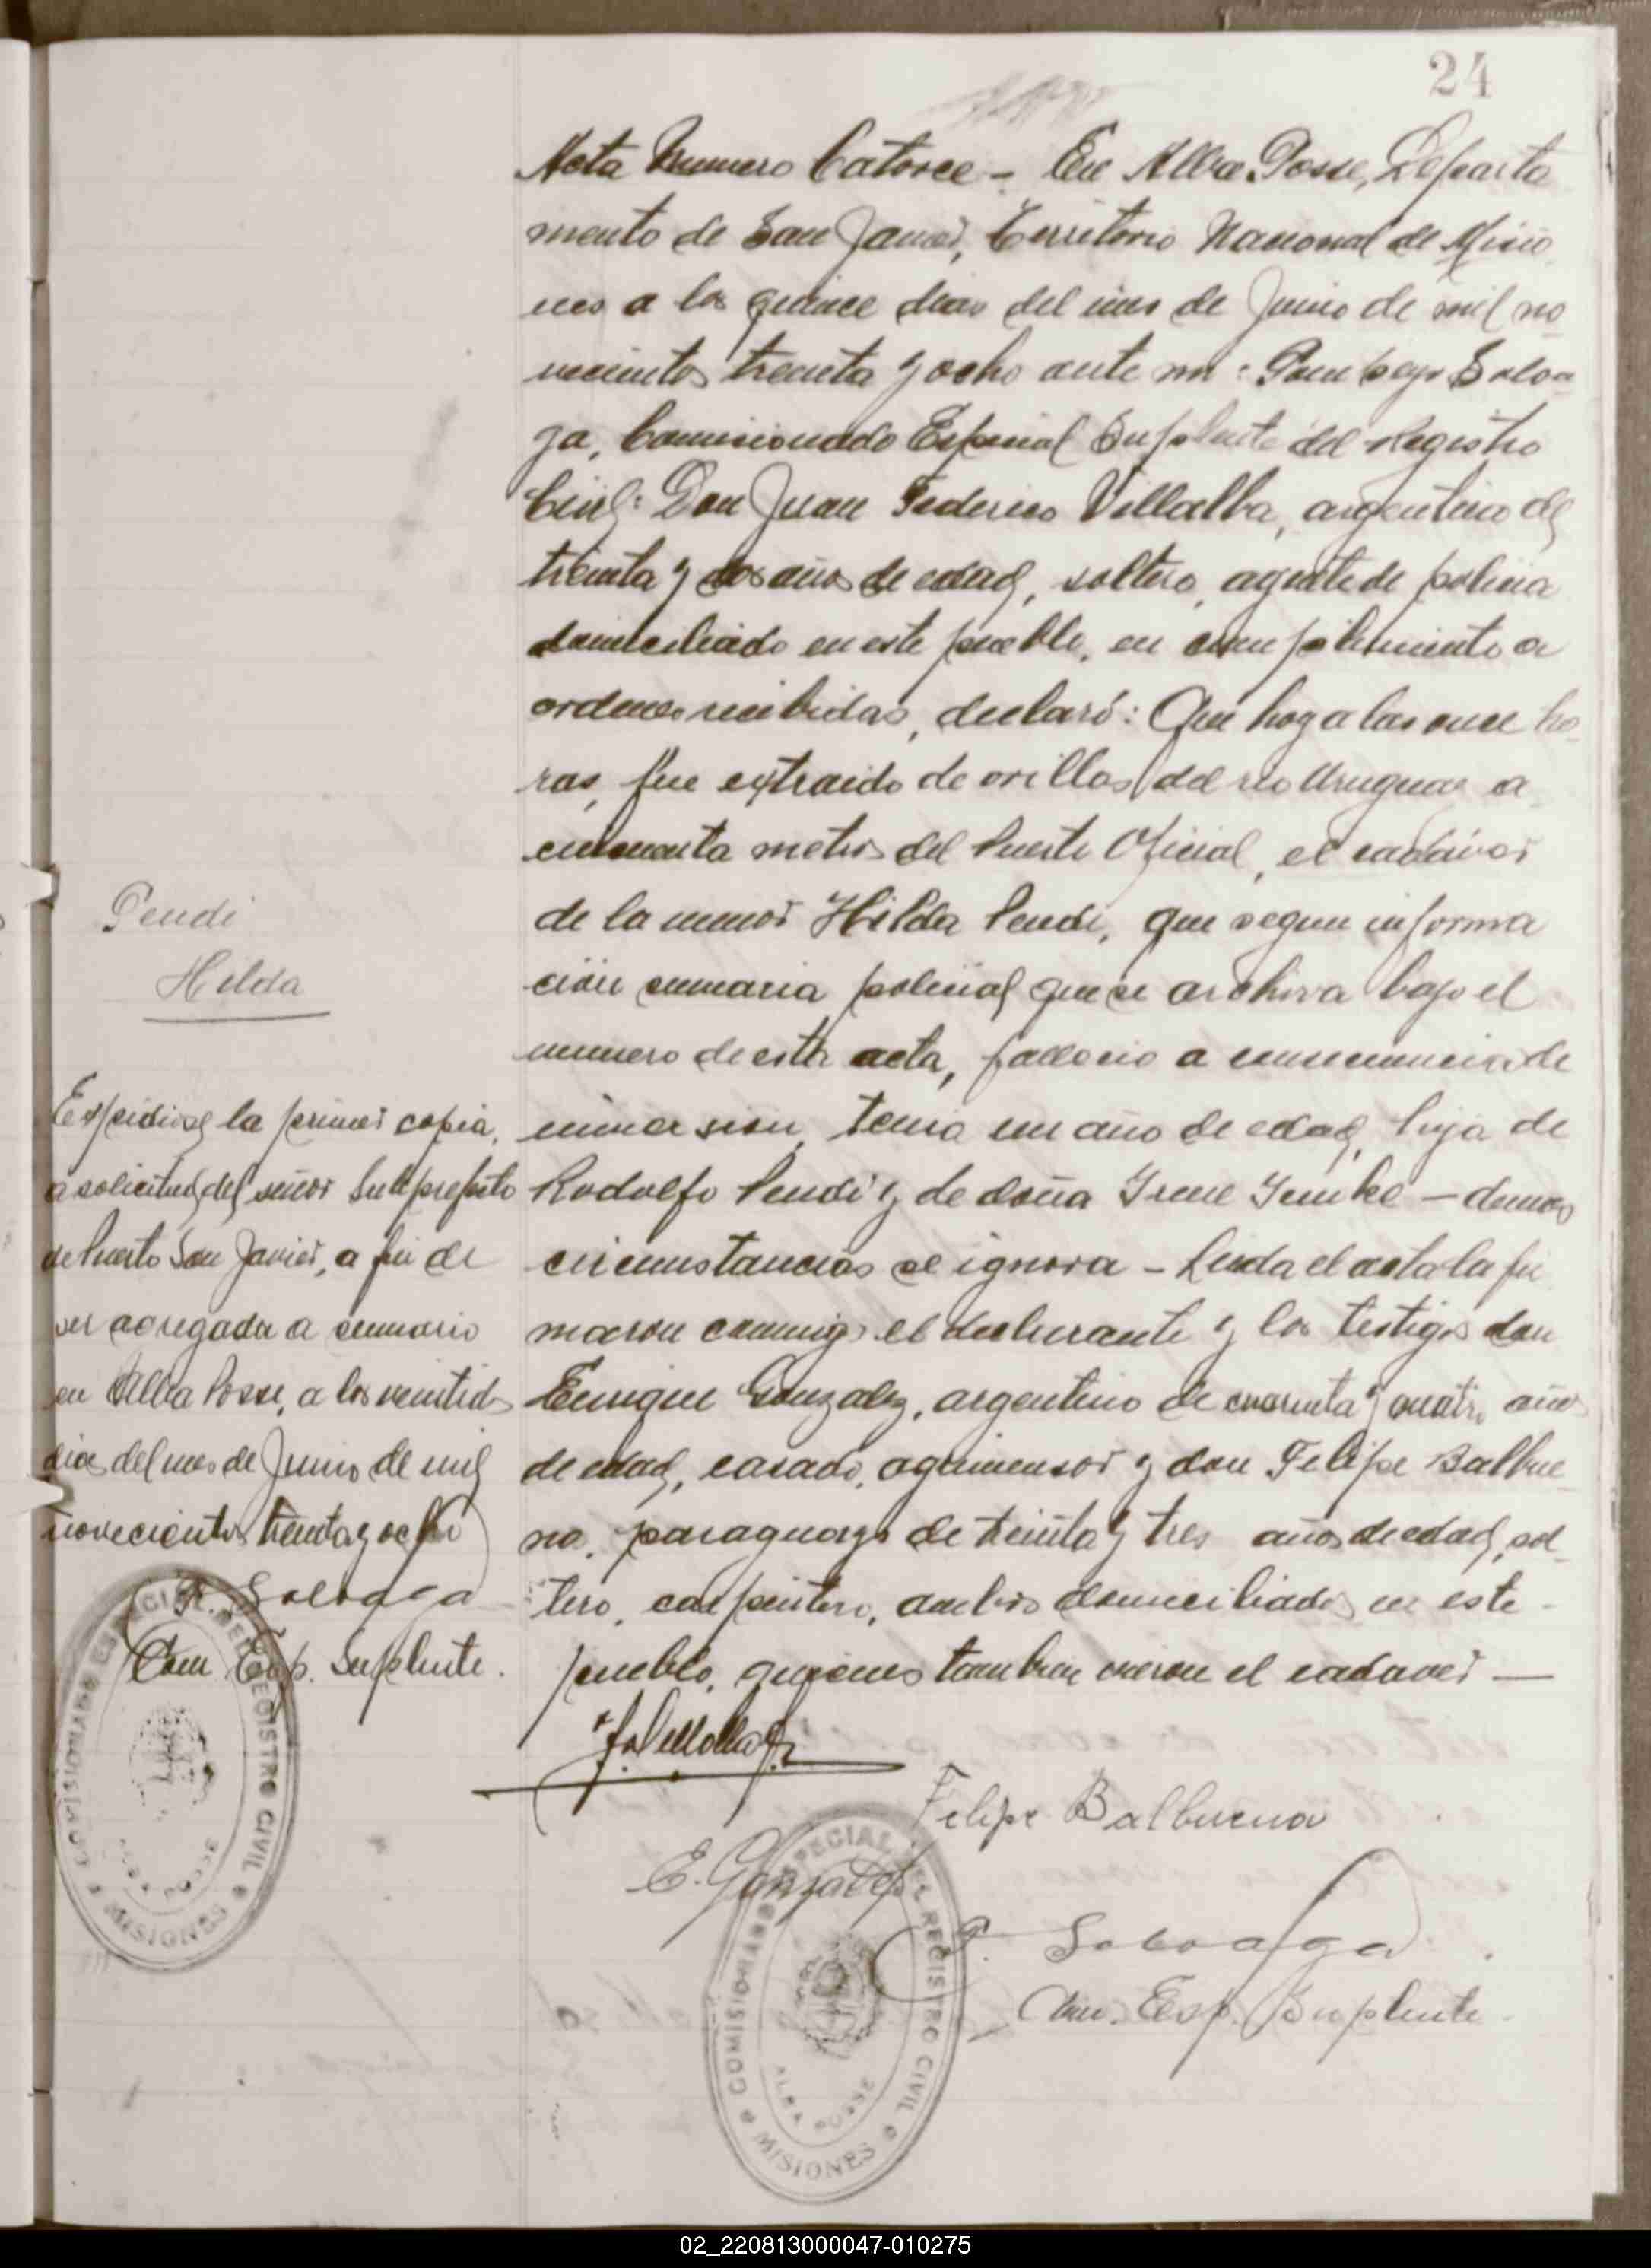 24
Acta Numero Catorce - En Alba Posse, Departa
mento de San Javier, Territorio Nacional de Misio
nes a los quince dias del mes de Junio de mil no
vecientos treinta y ocho ante mi: Pompeyo Soloa
ga, Comisionado Especial Suplente del Registro
Civil: Don Juan Federico Villalba, argentino de
treinta y dos años de edad, soltero, agente de policia
domiciliado en este pueblo, en cumplimiento a
ordenes recibidas, declaró: Que hoy a las once ho
ras, fue extraido de orillas del rio Uruguay a
cincuenta metros del Puerto Oficial, el cadáver
de la menor Hilda Pendi, que segun informa
ción sumaria policial que se archiva bajo el
numero de esta acta, fallecio a consecuencia de
inmersion, tenia un año de edad, hija de
Rodolfo Pendi y de doña Irene - demas
circunstancias se ignora - Leida el acta la fir
maron conmigo el declarante y los testigos don
Enrique Gonzalez, argentino de cuarenta y cuatro años
de edad, casado, agrimensor y don Felipe Balbue
na, paraguayo de treinta y tres años de edad, sol
tero, carpintero, ambos domiciliados en este -
pueblo, quienes tambien vieron el cadaver —
Pendi
Hilda
Expidiose la primer copia,
a solicitud del señor Subprefecto
de Puerto San Javier, a fin de
ser agregada a sumario
en Alba Posse, a los veintidos
dias del mes de Junio de mil
novecientos treinta y ocho
P. Soloaga
Com. Esp. Suplente.
COMISIONADO ESPECIAL DEL REGISTRO CIVIL
ALBA POSSE
MISIONES
J. Villalba
Felipe Balbuena
E. Gonzalez
P. Soloaga
Com. Esp. Suplente
COMISIONADO ESPECIAL DEL REGISTRO CIVIL
ALBA POSSE
MISIONES
02_220813000047-010275